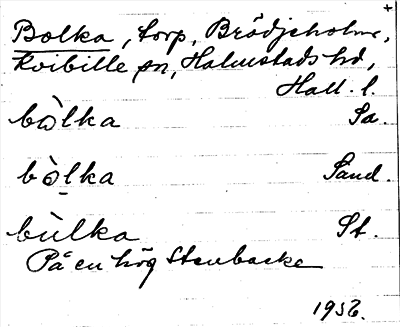 +
Bolka, torp, Brödjeholme,
Kvibille sn, Halmstads hd,
Hall. l.
bòlka Sa.
bò̱lka Sand.
bùlka St.
På en hög Stenbacke
1932.